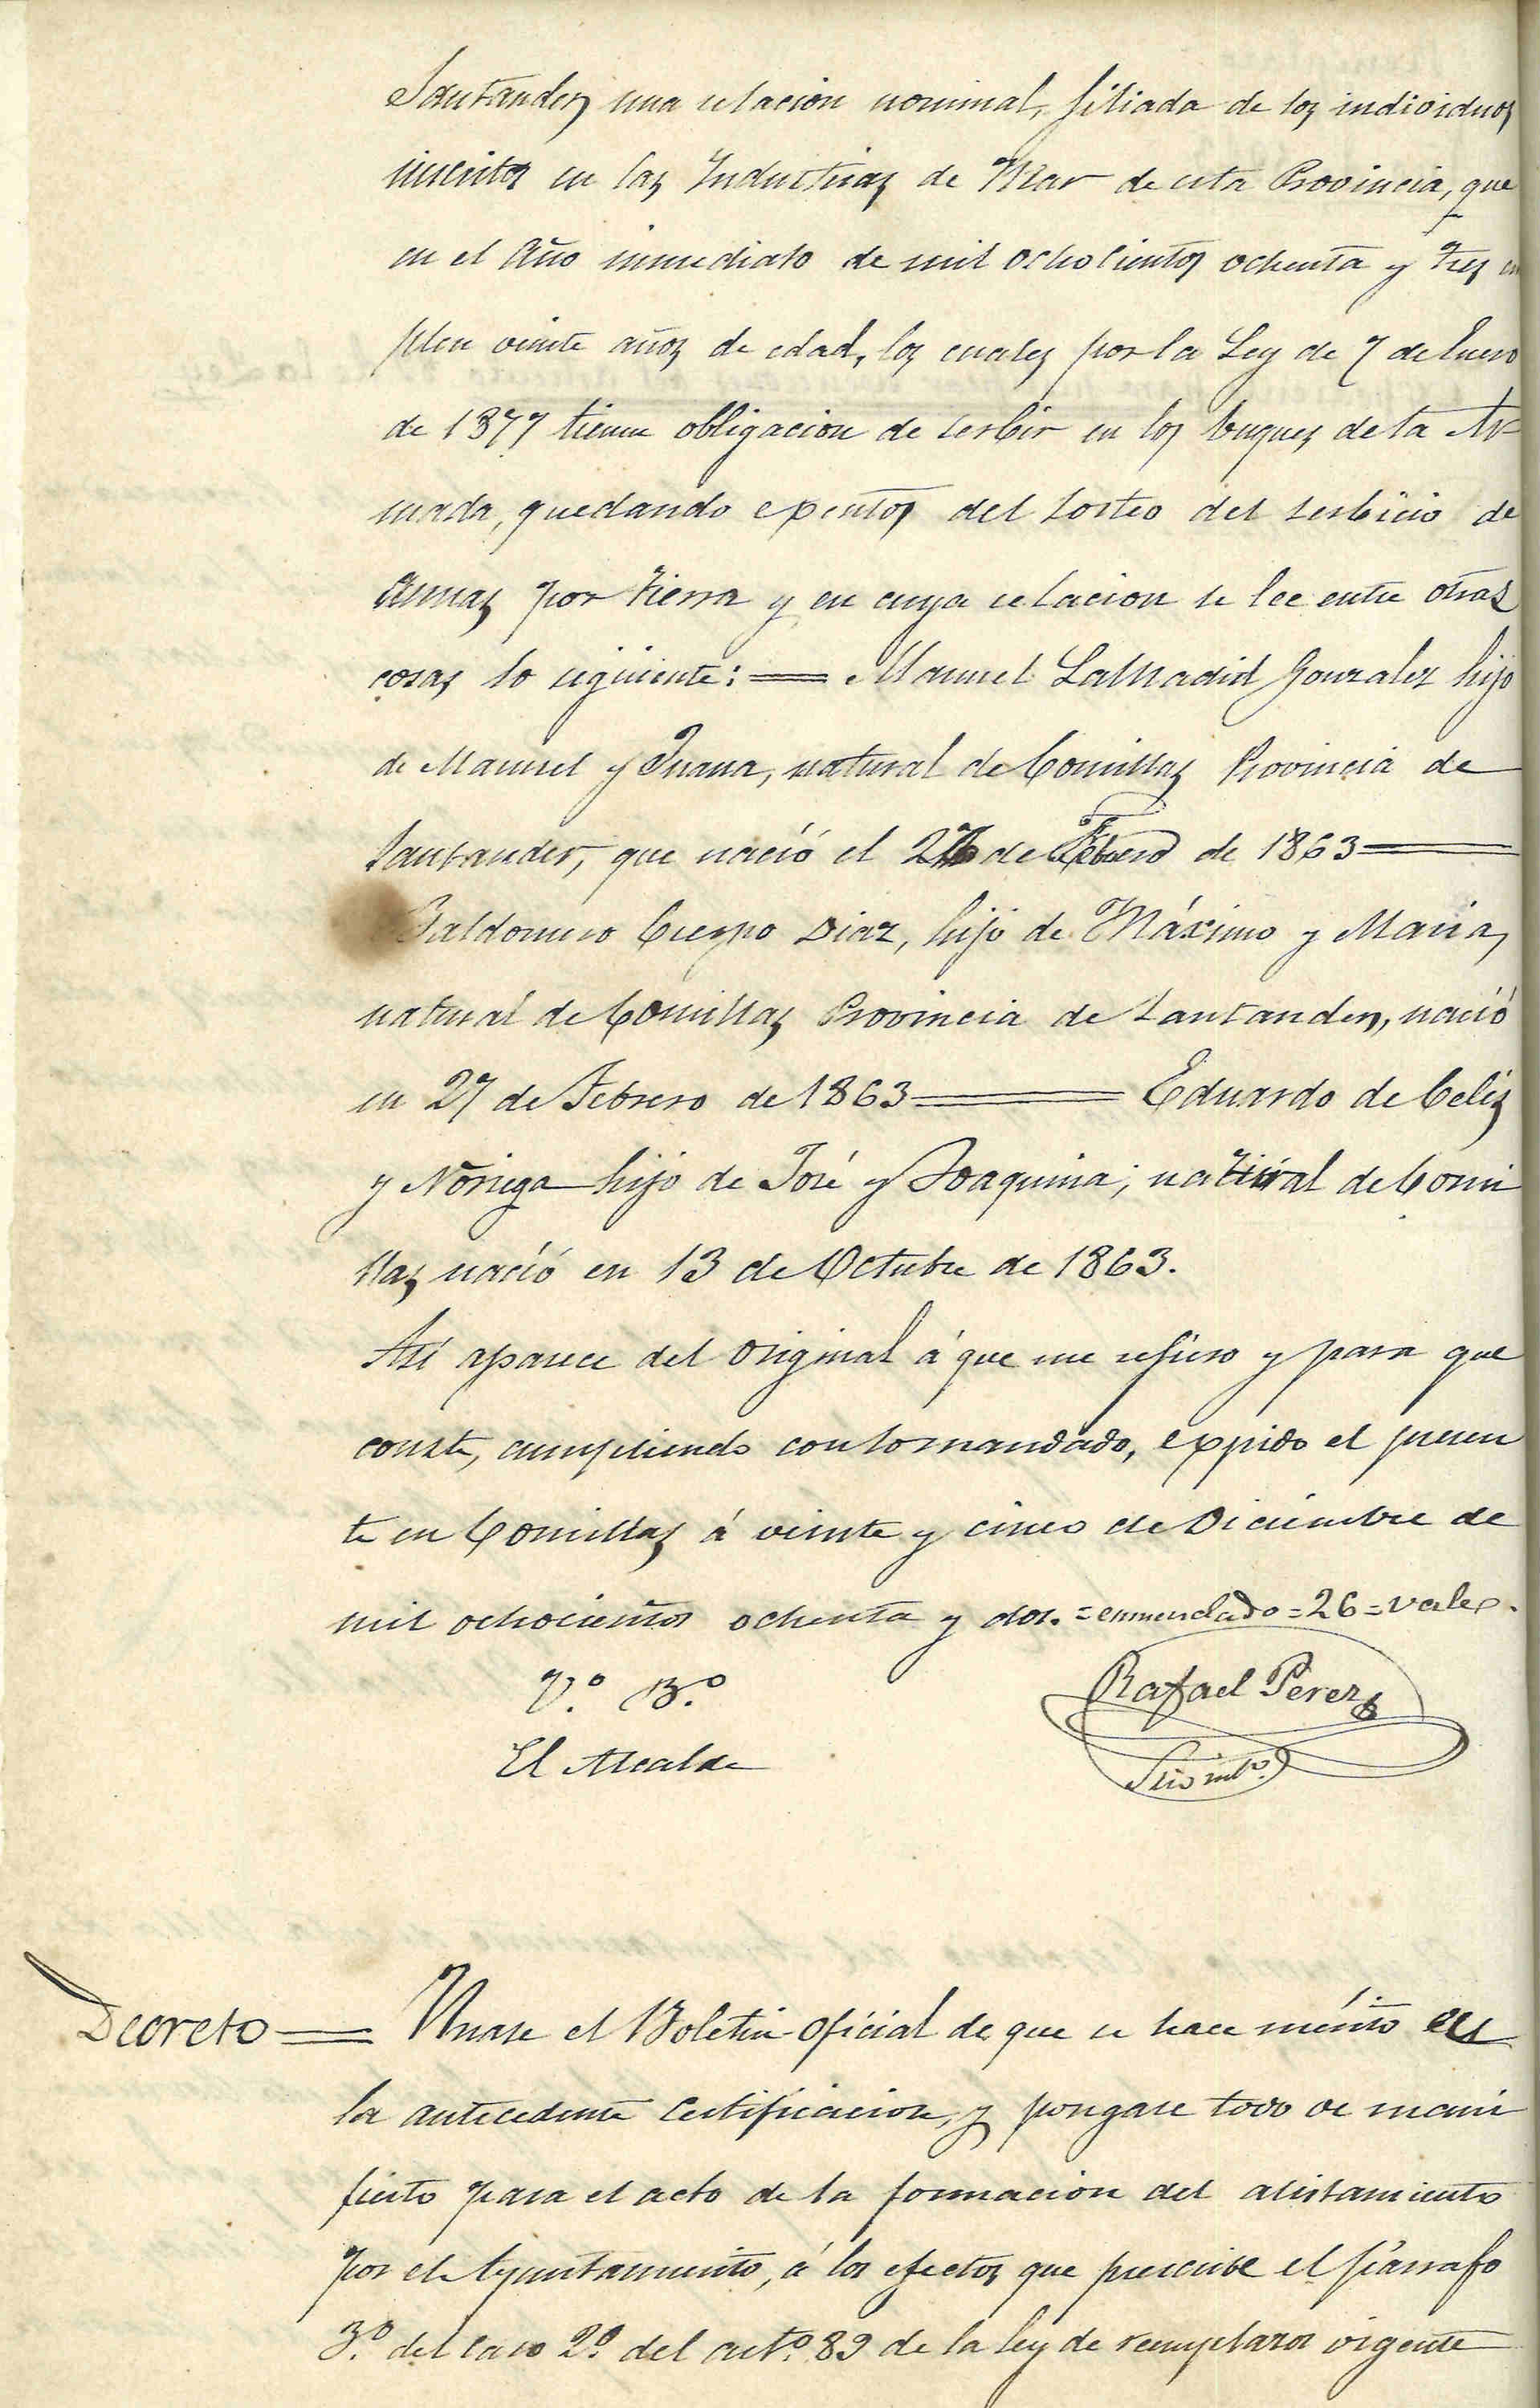 Santander, una relacion nominal, filiada de los individuos
inscritos en las Industrias de Mar de esta Provincia, que
en el Año inmediato de mil ochocientos ochenta y tres
plen veinte años de edad, los cuales por la Ley de 7 de Enero
de 1877 tienen obligacion de serbir en los buques de la Ar-
mada, quedando exentos del sorteo del serbicio de
Armas por tierra y en cuya relacion se lee entre otras
cosas lo siguiente: = Manuel LaMadrid Gonzalez hijo
de Manuel y Juana, natural de Comillas Provincia de
Santander, que nació el 26 de Febrero de 1863 =
Baldomero Crespo Diaz, hijo de Máximo y Maria,
natural de Comillas Provincia de Santander, nació
en 27 de Febrero de 1863 = Eduardo de Celis
y Noriega hijo de José y Joaquina; natural de Comi
llas, nació en 13 de Octubre de 1863.
Asi aparece del original á que me refiero y para que
conste, cumpliendo con lo mandado, expido el presen
te en Comillas á veinte y cinco de Diciembre de
mil ochocientos ochenta y dos. = enmendado = 26 = vale.
V.º B.º
El Alcalde
Rafael Perez
Srio
Decreto = Unase el Boletin oficial de que se hace mérito en
la antecedente certificacion, y pongase todo de mani
fiesto para el acto de la formacion del alistamiento
por el Ayuntamiento, á los efectos que prescribe el párrafo
3.º del caso 2.º del art.º 89 de la ley de remplazos vigente